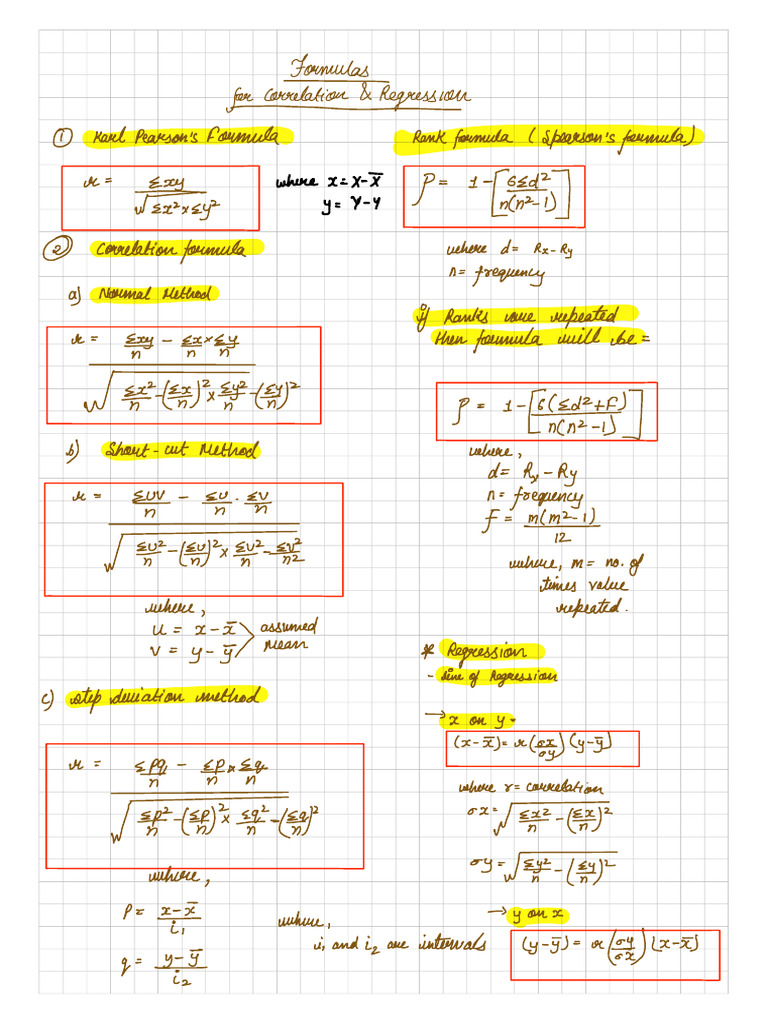 Formulas
for Correlation & Regression
① Karl Pearson's Formula
r = Σxy / √Σx² × Σy²
where x = X - X̄
y = Y - Y
② Correlation formula
a) Normal Method
r = Σxy/n - Σx/n × Σy/n / √Σx²/n - (Σx/n)² × Σy²/n - (Σy/n)²
b) Short-cut Method
r = ΣUV/n - ΣU/n . ΣV/n / √ΣU²/n - (ΣU/n)² × ΣV²/n - ΣV²/n2
where,
u = x - x̄
v = y - ȳ
assumed
mean
c) step deviation method
r = Σpq/n - Σp/n × Σq/n / √Σp²/n - (Σp/n)² × Σq²/n - (Σq/n)²
where,
P = x - x̄ / i₁
q = y - ȳ / i₂
where,
i₁ and i₂ are intervals
Rank formula ( Spearson's formula)
ρ = 1 - [6Σd² / n(n²-1)]
where d = Rx - Ry
n = frequency
if Ranks were repeated
then formula will be =
ρ = 1 - [6(Σd²+F) / n(n²-1)]
where,
d = Rx - Ry
n = frequency
F = m(m²-1) / 12
where, m = no. of
times value
repeated.
* Regression
- line of Regression
→ x on y -
(x - x̄) = r (σx/σy) (y - ȳ)
where r = correlation
σx = √Σx²/n - (Σx/n)²
σy = √Σy²/n - (Σy/n)²
→ y on x
(y - ȳ) = r (σy/σx) (x - x̄)